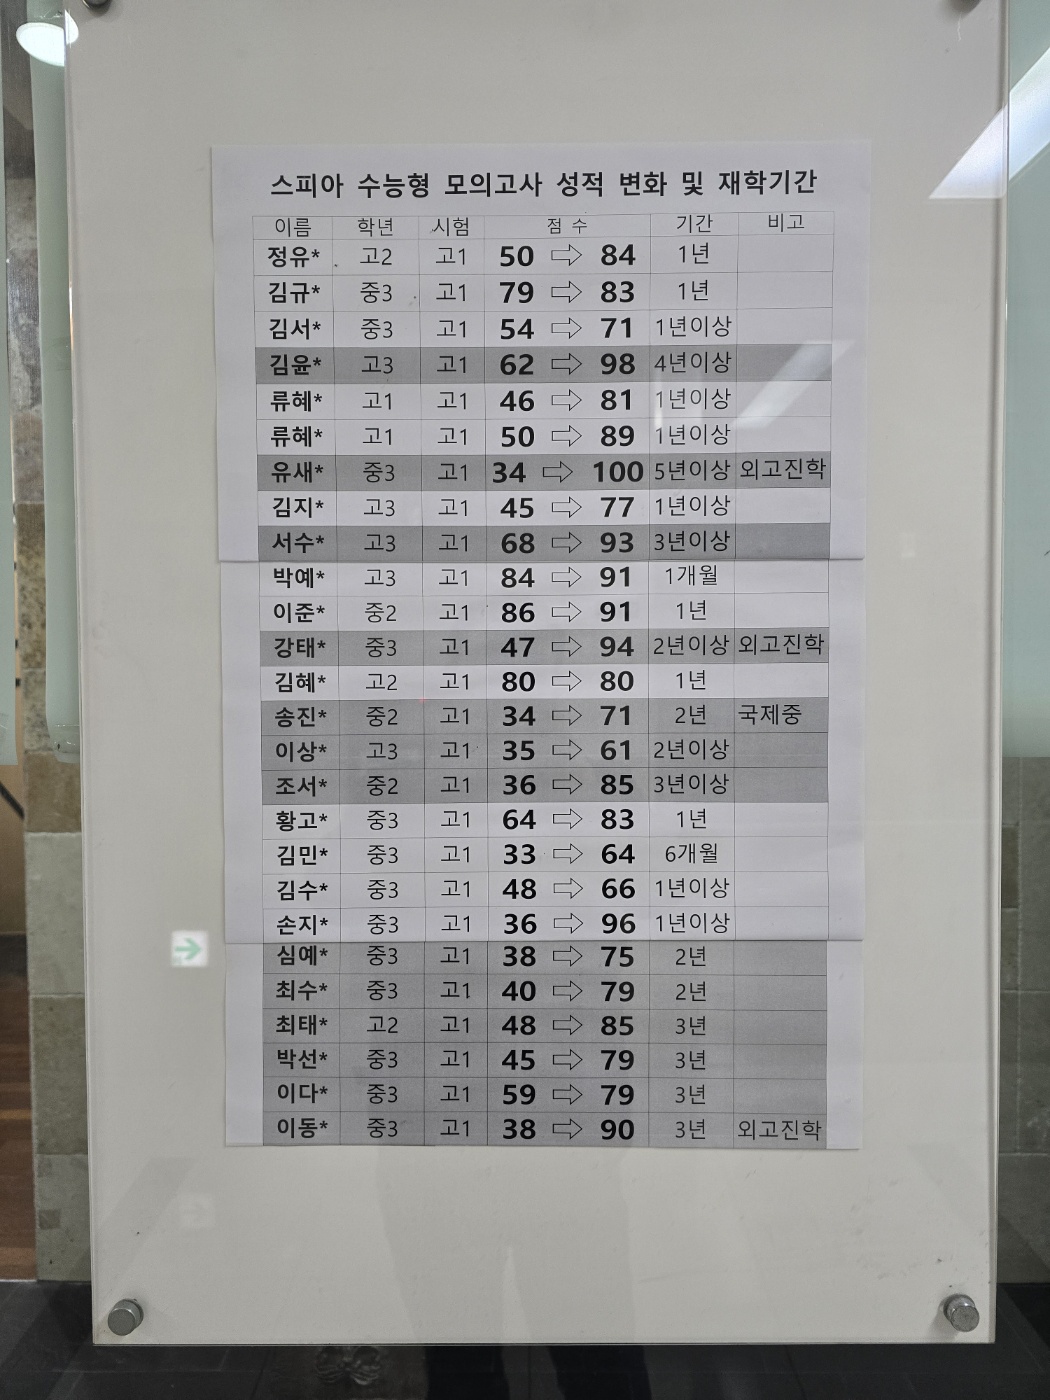 스피아 수능형 모의고사 성적 변화 및 재학기간
이름 학년 시험 점 수 기간 비고
정유* 고2 고1 50 ⇨ 84 1년
김규* 중3 고1 79 ⇨ 83 1년
김서* 중3 고1 54 ⇨ 71 1년이상
김윤* 고3 고1 62 ⇨ 98 4년이상
류혜* 고1 고1 46 ⇨ 81 1년이상
류혜* 고1 고1 50 ⇨ 89 1년이상
유새* 중3 고1 34 ⇨ 100 5년이상 외고진학
김지* 고3 고1 45 ⇨ 77 1년이상
서수* 고3 고1 68 ⇨ 93 3년이상
박예* 고3 고1 84 ⇨ 91 1개월
이준* 중2 고1 86 ⇨ 91 1년
강태* 중3 고1 47 ⇨ 94 2년이상 외고진학
김혜* 고2 고1 80 ⇨ 80 1년
송진* 중2 고1 34 ⇨ 71 2년 국제중
이상* 고3 고1 35 ⇨ 61 2년이상
조서* 중2 고1 36 ⇨ 85 3년이상
황고* 중3 고1 64 ⇨ 83 1년
김민* 중3 고1 33 ⇨ 64 6개월
김수* 중3 고1 48 ⇨ 66 1년이상
손지* 중3 고1 36 ⇨ 96 1년이상
심예* 중3 고1 38 ⇨ 75 2년
최수* 중3 고1 40 ⇨ 79 2년
최태* 고2 고1 48 ⇨ 85 3년
박선* 중3 고1 45 ⇨ 79 3년
이다* 중3 고1 59 ⇨ 79 3년
이동* 중3 고1 38 ⇨ 90 3년 외고진학